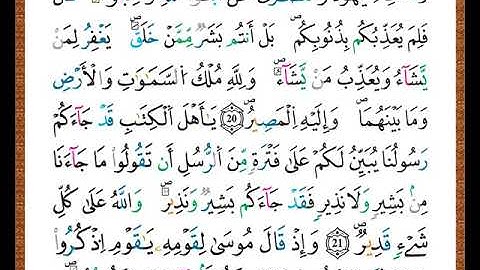 فَلِمَ يُعَذِّبُكُم بِذُنُوبِكُمۖ بَلْ أَنتُم بَشَرٌ مِّمَّنْ خَلَقَۖ يَغْفِرُ لِمَنْ
يَّشَآءُ وَيُعَذِّبُ مَنْ يَّشَآءُۖ وَلِلهِ مُلْكُ السَّمَٰوَٰتِ وَالْأَرْضِ
وَمَا بَيْنَهُمَاۖ وَإِلَيْهِ اِ۬لْمَصِيرُۖ 20 يَٰأَهْلَ اَ۬لْكِتَٰبِ قَدْ جَآءَكُمْ
رَسُولُنَا يُبَيِّنُ لَكُمْ عَلَىٰ فَتْرَةٍ مِّنَ اَ۬لرُّسُلِ أَن تَقُولُوا مَا جَآءَنَا
مِنۢ بَشِيرٍ وَلَا نَذِيرٍ فَقَدْ جَآءَكُم بَشِيرٌ وَنَذِيرٌۖ وَاللَّهُ عَلَىٰ كُلِّ
شَےْءٍ قَدِيرٌۖ 21 وَإِذْ قَالَ مُوسَىٰ لِقَوْمِهِ يَٰقَوْمِ اِ۟ذْكُرُوا